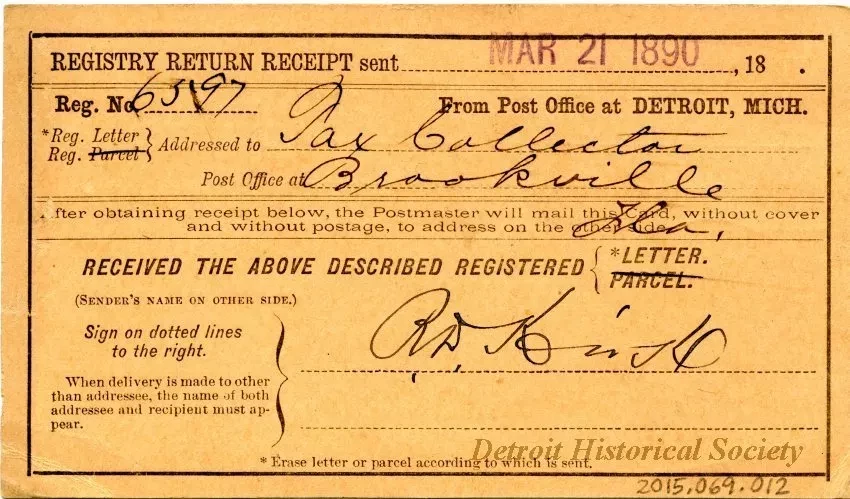 REGISTRY RETURN RECEIPT sent MAR 21 1890, 18 .
Reg. No 6597 From Post Office at DETROIT, MICH.
*Reg. Letter } Addressed to Tax Collector
Reg. Parcel
Post Office at Brookville
After obtaining receipt below, the Postmaster will mail this Card, without cover
and without postage, to address on the other side.
Fla,
RECEIVED THE ABOVE DESCRIBED REGISTERED { *LETTER.
PARCEL.
(SENDER'S NAME ON OTHER SIDE.)
Sign on dotted lines
to the right.
R.D.
When delivery is made to other
than addressee, the name of both
addressee and recipient must ap-
pear.
* Erase letter or parcel according to which is sent.
Detroit Historical Society
2015.069.012